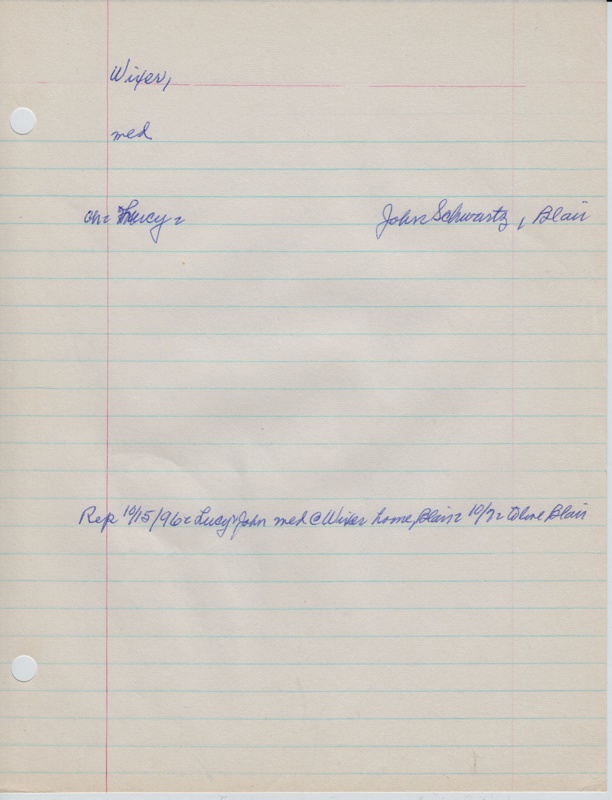 Wixer,
med
ch: Lucy - John Schwartz, Blair
Rep 10/15/96 - Lucy & John med @ Wixer home, Blair - 10/7 - to live Blair